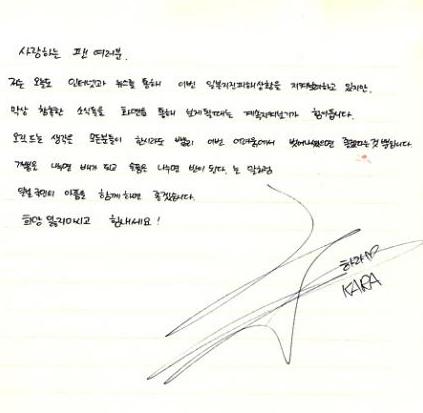 사랑하는 팬 여러분.
저는 오늘도 인터넷과 뉴스를 통해 이번 일본지진피해상황을 지켜보고 있지만,
막상 참혹한 소식들을 화면을 통해 보게될때는 계속지켜보기가 힘이듭니다.
오직드는 생각은 모든분들이 하루라도 빨리 이번 어려움에서 벗어나셨으면 좋겠다는것 뿐입니다.
기쁨은 나누면 배가 되고 슬픔은 나누면 반이된다. 는 말처럼
일본 국민의 아픔을 함께 하면 좋겠습니다.
희망 잃지마시고 힘내세요!
하라
KARA